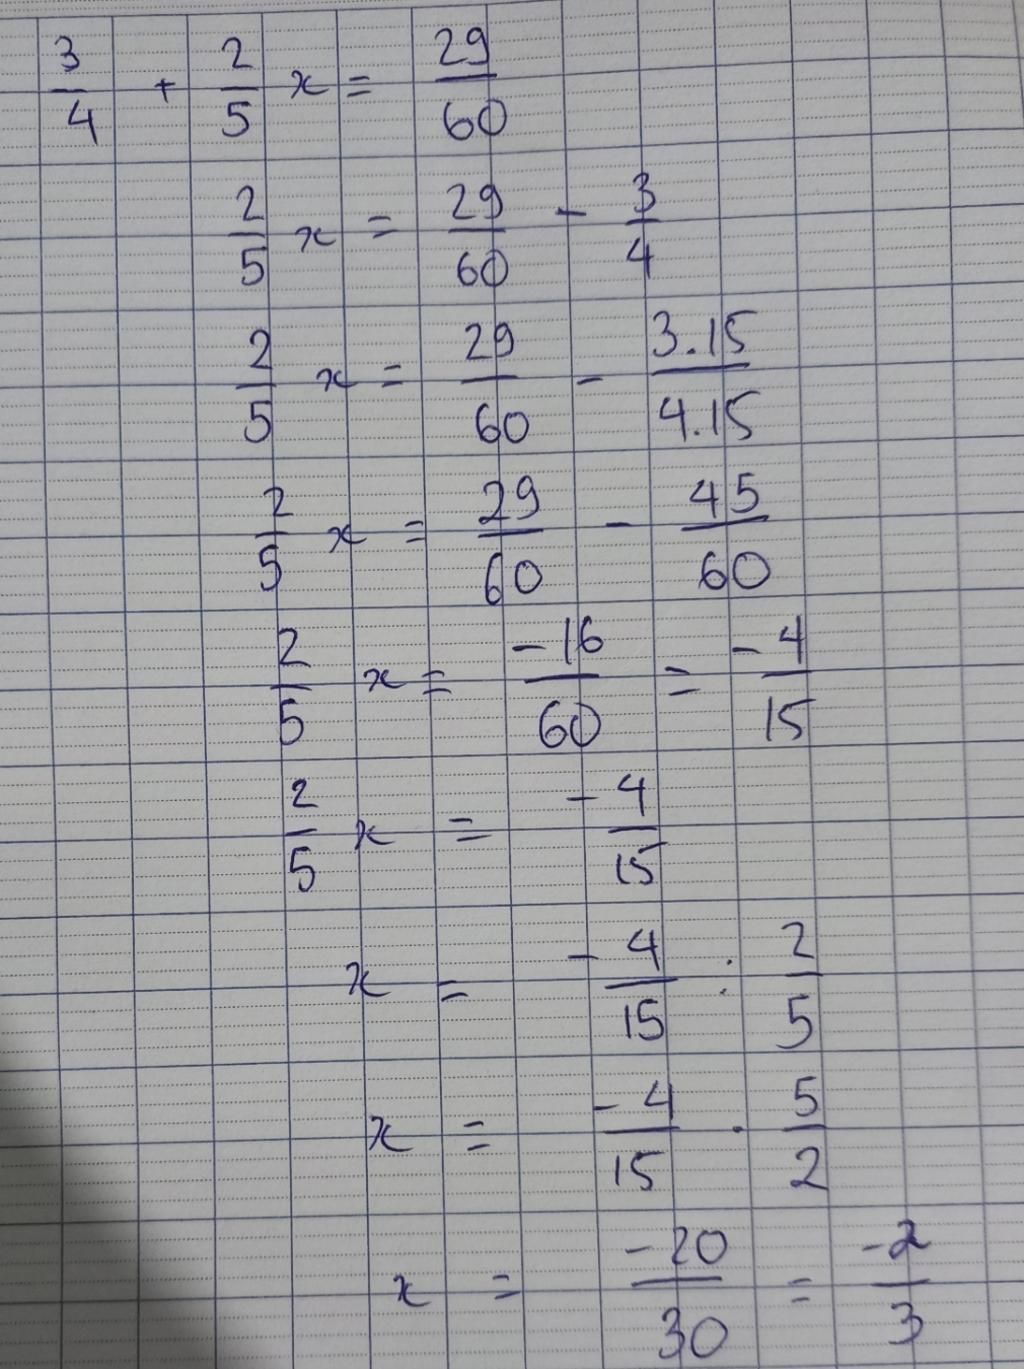 3/4 + 2/5 x = 29/60
2/5 x = 29/60 - 3/4
2/5 x = 29/60 - 3.15/4.15
2/5 x = 29/60 - 45/60
2/5 x = -16/60 = -4/15
2/5 x = -4/15
x = -4/15 : 2/5
x = -4/15 . 5/2
x = -20/30 = -2/3